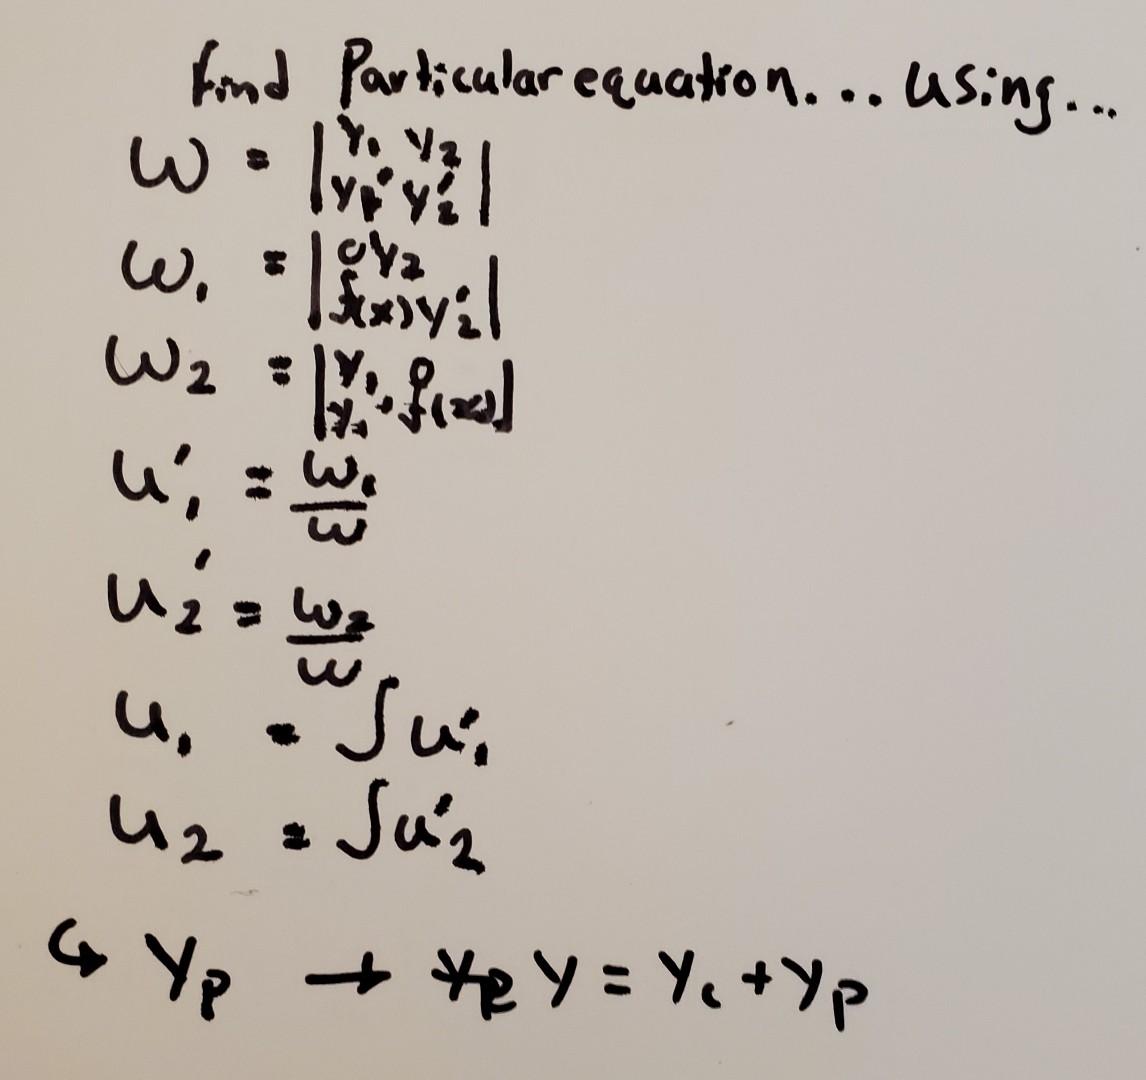 find Particular equation... using...
W = | y₁ y₂ |
| y₁' y₂' |
W₁ = | 0 y₂ |
| f(x) y₂' |
W₂ = | y₁ 0 |
| y₁' f(x) |
u₁' = W₁/W
u₂' = W₂/W
u₁ = ∫u₁'
u₂ = ∫u₂'
↪ yₚ → y = y꜀ + yₚ